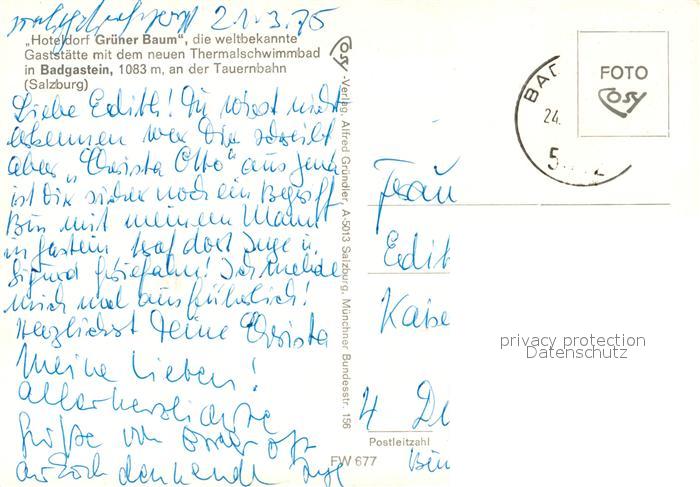 21.3.75
„Hoteldorf Grüner Baum“, die weltbekannte
Gaststätte mit dem neuen Thermalschwimmbad
in Badgastein, 1083 m, an der Tauernbahn
(Salzburg)
Liebe Edith! Du wirst nicht
erkennen wer Dir schreibt
aber „Christa Otto“ aus Jena
ist Dir sicher noch ein Begriff
Bin mit meinem Mann
in Gastein traf dort Inge u.
Sigurd! Ich melde
mich mal ausführlich!
Herzlichst Deine Christa
Meine Lieben!
Allerherzlichste
Grüße von
denkende Inge
Cosy-Verlag, Alfred Gründler, A-5013 Salzburg, Münchner Bundesstr. 156
FOTO
Cosy
BAD
24.
5
Frau
Edit
Kaise
4 Du
Postleitzahl
FW 677
privacy protection
Datenschutz